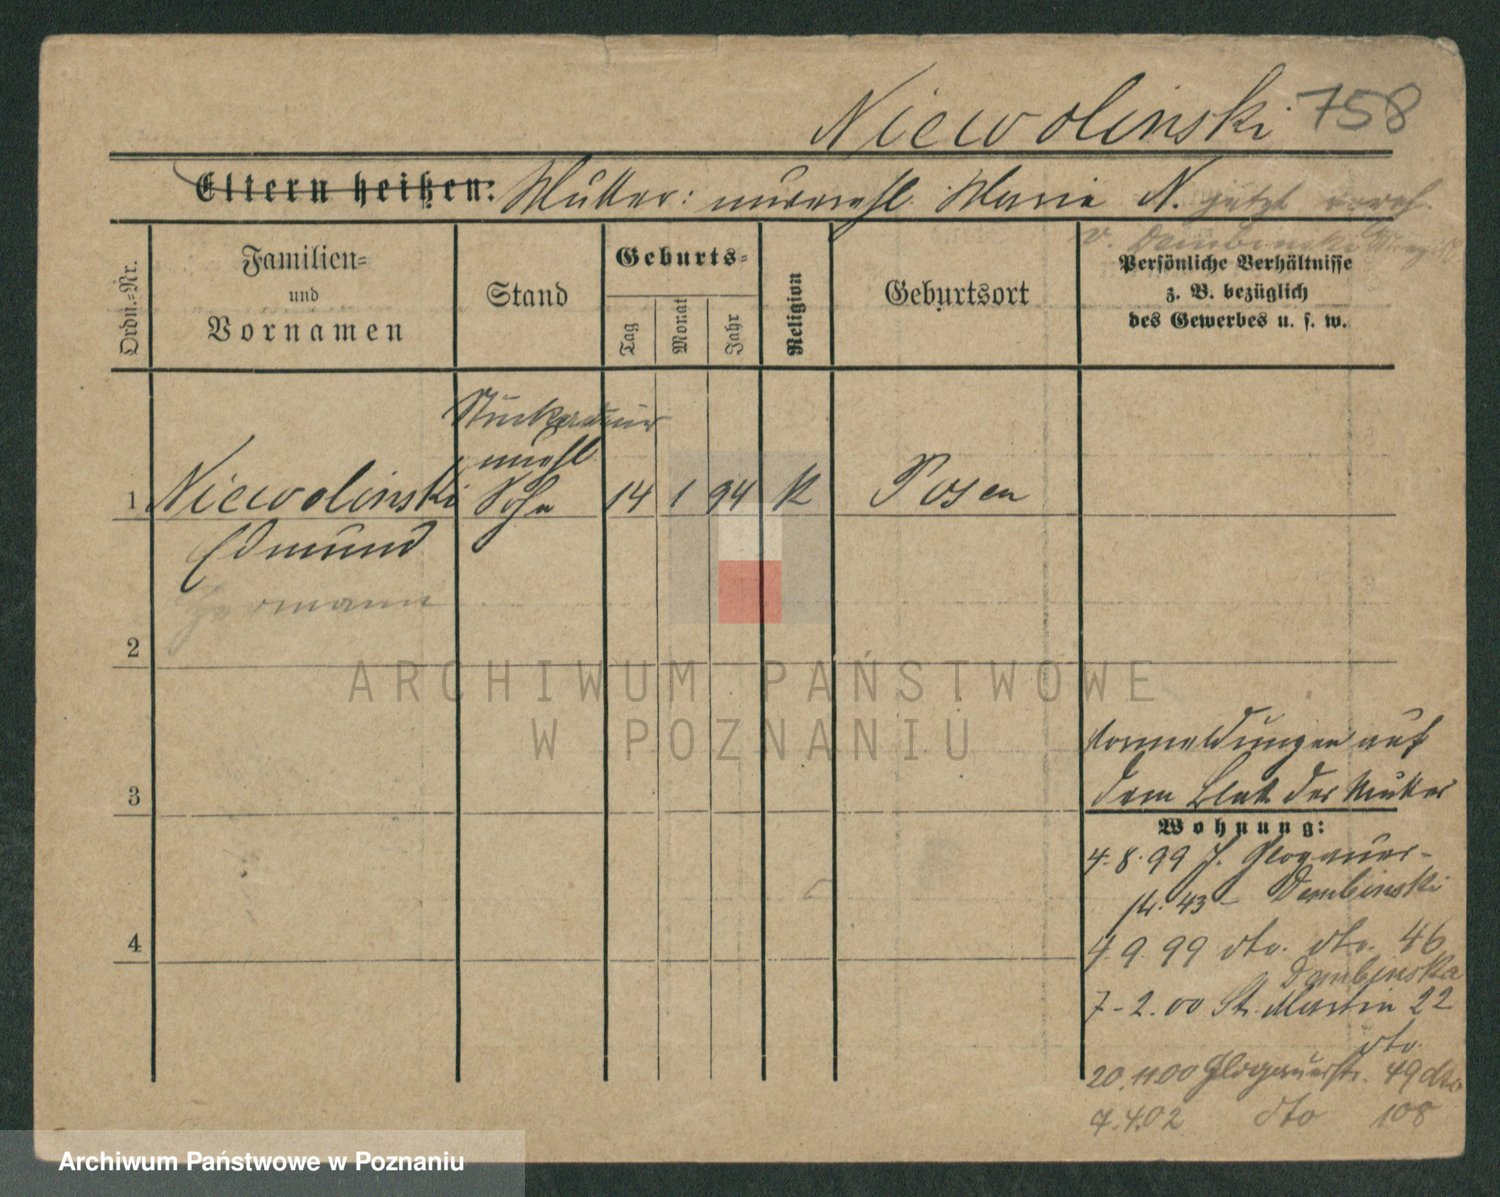 Niewolinski 758
Eltern heißen: Mutter: unverehl. Maria N. jetzt vereh.
v. Dembinski
Ordn.-Nr.
Familien-
und
Vornamen
Stand
Geburts-
Tag
Monat
Jahr
Religion
Geburtsort
Persönliche Verhältnisse
z. B. bezüglich
des Gewerbes u. s. w.
Stuckateur
unehl.
1 Niewolinski Sohn 14 1 94 K Posen
Edmund
Hermann
2
ARCHIWUM PAŃSTWOWE
W POZNANIU
Vormeldungen auf
dem Blatt der Mutter
3
Wohnung:
4.8.99 J. Glogauer-
str. 43 - Dembinski
4
4.9.99 dto. dto. 46
Dembinska
7-2.00 St. Martin 22
dto.
20.11.00 Glogauerstr. 49 dto
7.4.02 dto 108
Archiwum Państwowe w Poznaniu